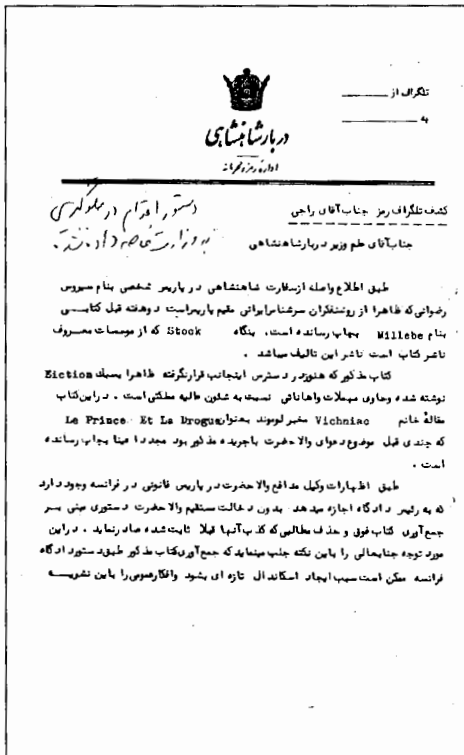 تلگراف از
به
دربار شاهنشاهی
اداره رمز و محرمانه
کشف تلگراف رمز جناب آقای راجی
دستور اقدام در جلوگیری
به وزارت خارجه داده شد.
جناب آقای علم وزیر دربار شاهنشاهی
طبق اطلاع واصله از سفارت شاهنشاهی در پاریس شخصی بنام سیروس
رضوانی که ظاهرا از روشنفکران سرشناس ایرانی مقیم پاریس است دو هفته قبل کتابی
بنام Millebe بچاپ رسانده است، بنگاه Stock که از موسسات معروف
ناشر کتاب است ناشر این تالیف میباشد .
کتاب مذکور که هنوز در دسترس اینجانب قرار نگرفته ظاهرا بسبک Eiction
نوشته شده و حاوی مهملات و اهاناتی نسبت به شئون عالیه مملکتی است . در این کتاب
مقالهٔ خانم Vichniac مخبر لوموند بعنوان Le Prince Et La Drogue
که چندی قبل موضوع دعوای والا حضرت با جریده مذکور بود مجددا عینا بچاپ رسانده
است .
طبق اظهارات وکیل مدافع والا حضرت در پاریس قانونی در فرانسه وجود دارد
که به رئیس دادگاه اجازه میدهد بدون دخالت مستقیم والا حضرت دستوری مبنی بر
جمع‌آوری کتاب فوق و حذف مطالبی که کذب آنها قبلا ثابت شده صادر نماید . در این
مورد توجه جنابعالی را باین نکته جلب مینماید که جمع‌آوری کتاب مذکور طبق دستور دادگاه
فرانسه ممکن است سبب ایجاد اسکاندال تازه ای بشود و افکار عمومی را باین نشریه